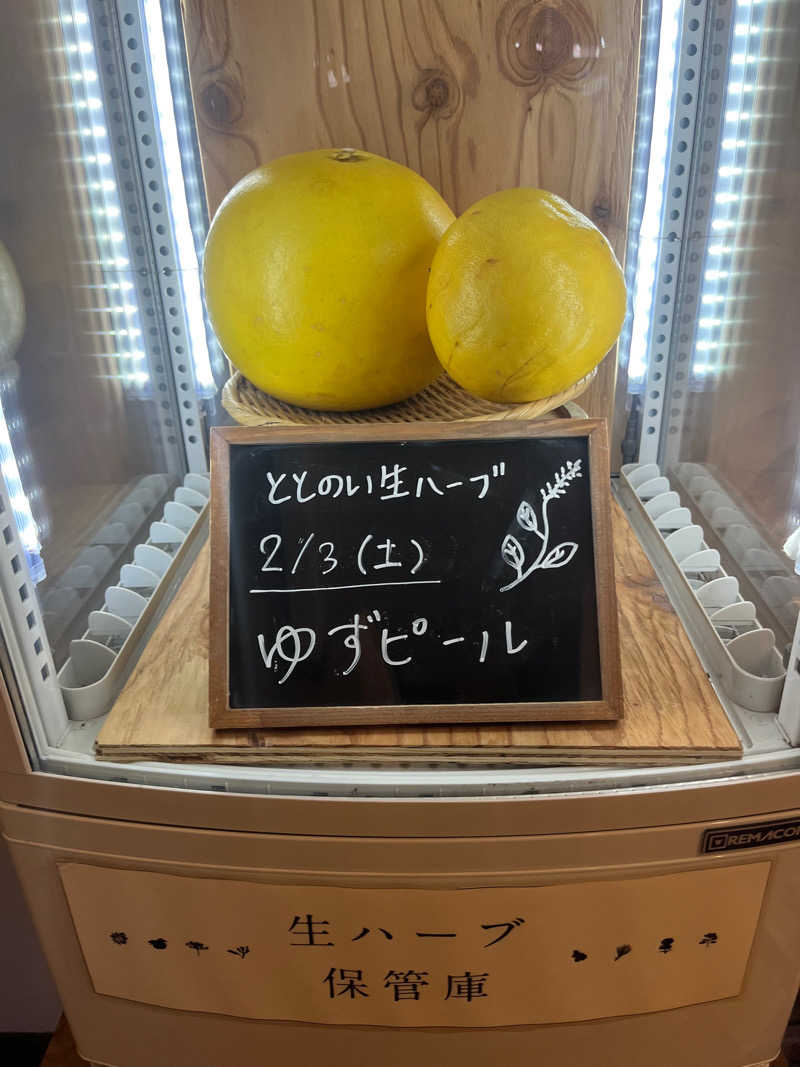 ととのい生ハーブ
2/3(土)
ゆずピール
REMACO
生ハーブ
保管庫